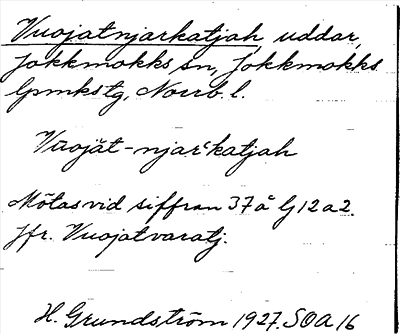 Vuojatnjarkatjah, uddar,
Jokkmokks sn, Jokkmokks
lpmkstg, Norrb. l.
Vūojăt-njar‘katjah
Mötas vid siffran 37 å Lj 12 a 2.
Jfr. Vuojatvaratj.
H. Grundström 1927. SOA 16